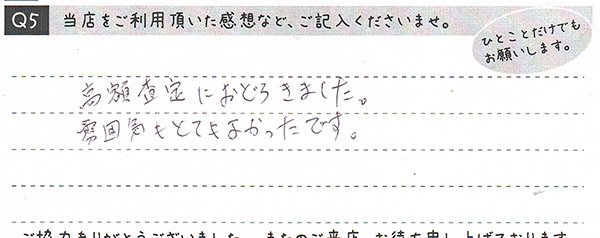 Q5 当店をご利用頂いた感想など、ご記入くださいませ。
ひとことだけでも
お願いします。
高額査定におどろきました。
雰囲気もとてもよかったです。
ご協力ありがとうございました。またのご来店、お待ち申し上げております